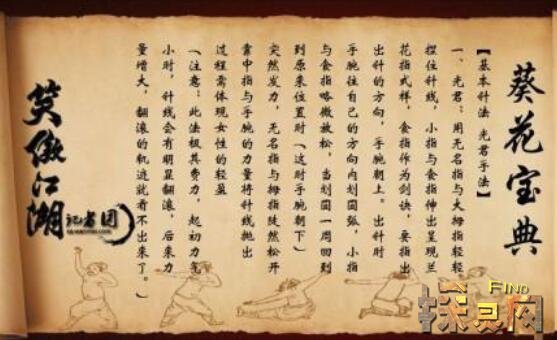 葵花宝典
【基本针法 光君手法】
一、光君:用无名指与大拇指轻轻
捏住针线,小指与食指伸出呈现兰
花指式样,食指作为剑诀,要指出
出针的方向,手腕朝上。出针时
手腕往自己的方向内划圆弧,小指
与食指略微放松,当划圆一周回到
到原来位置时(这时手腕朝下)
突然发力,无名指与拇指陡然松开
靠中指与手腕的力量将针线抛出
过程需体现女性的轻盈
(注意:此法极其费力,起初力气
小时,针线会有明显翻滚,后来力
量增大,翻滚的轨迹就看不出来了。)
笑傲江湖
记者团
FIND
探灵网